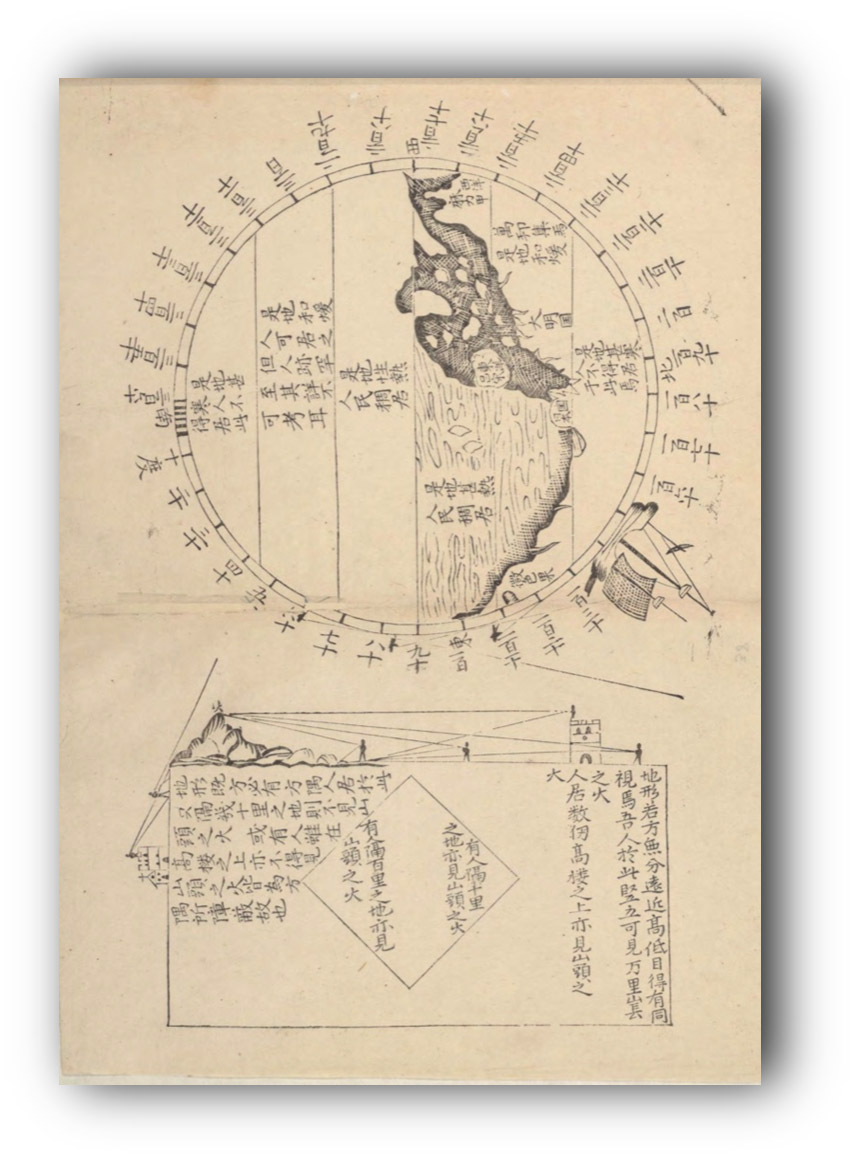 十度
二十
三十
四十
五十
六十
七十
八十
九十
東一百
一百一十
一百二十
一百三十
一百六十
一百七十
一百八十
北一百九十
二百
二百一十
二百二十
二百三十
二百四十
二百五十
二百六十
西二百七十
二百八十
二百九十
三百
三百一十
三百二十
三百三十
三百四十
三百五十
三百六十
南
是地甚
寒人不
得居此
是地和煖
人可居之
但人跡罕
至其詳不
可考耳
是地性熱
人民稠居
是地甚熱
人民稠居
是地和煖
大明國
是地甚寒
人不得居
于此焉
火
地形若方無分遠近高低目得有同
視焉吾人於此竪立可見万里山
之火
人居数仞高楼之上亦見山頭之
火
有人隔十里
之地亦見山頭之火
有人隔百里之地亦見
山頭之火
地形既方必有方隅人居於此
又隔幾十里之地則不見山
頭之火或有人雖在
高楼之上亦不得見
山頭之火皆為方
隅所障蔽故也